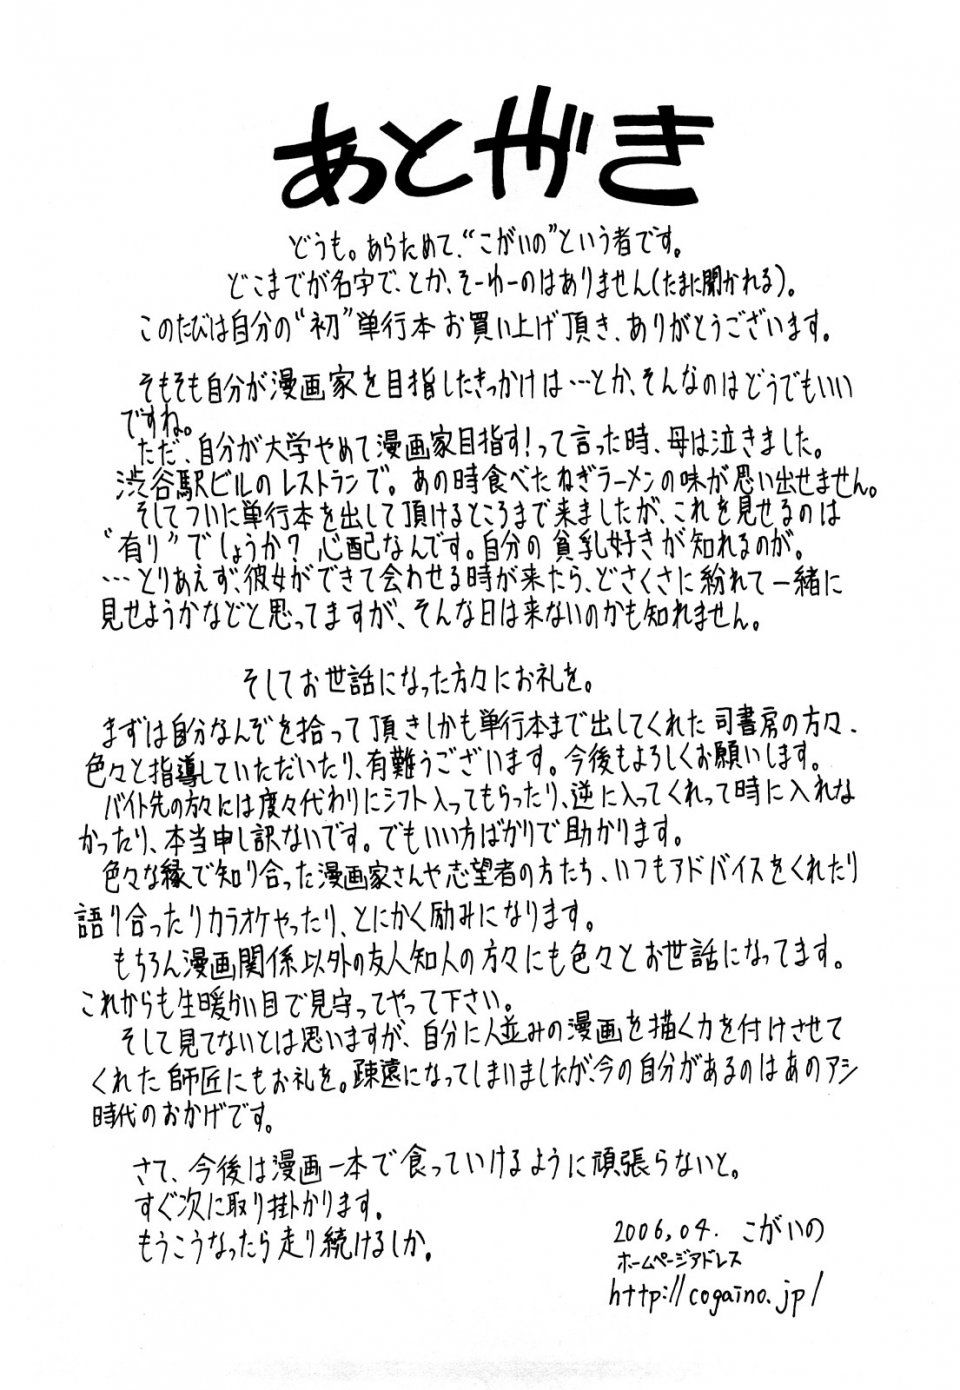 あとがき
どうも。あらためて、“こがいの”という者です。
どこまでが名字で、とか、そーゆーのはありません(たまに聞かれる)。
このたびは自分の“初”単行本 お買い上げ頂き、ありがとうございます。
そもそも自分が漫画家を目指したきっかけは…とか、そんなのはどうでもいい
ですね。
ただ、自分が大学やめて漫画家目指す!って言った時、母は泣きました。
渋谷駅ビルのレストランで。あの時食べたねぎラーメンの味が思い出せません。
そしてついに単行本を出して頂けるところまで来ましたが、これを見せるのは
“有り”でしょうか?心配なんです。自分の貧乳好きが知れるのが。
…とりあえず、彼女ができて会わせる時が来たら、どさくさに紛れて一緒に
見せようかなどと思ってますが、そんな日は来ないのかも知れません。
そしてお世話になった方々にお礼を。
まずは自分なんぞを拾って頂きしかも単行本まで出してくれた司書房の方々、
色々と指導していただいたり、有難うございます。今後もよろしくお願いします。
バイト先の方々には度々代わりにシフト入ってもらったり、逆に入ってくれって時に入れな
かったり、本当申し訳ないです。でもいい方ばかりで助かります。
色々な縁で知り合った漫画家さんや志望者の方たち、いつもアドバイスをくれたり
語り合ったりカラオケやったり、とにかく励みになります。
もちろん漫画関係以外の友人知人の方々にも色々とお世話になってます。
これからも生暖かい目で見守ってやって下さい。
そして見てないとは思いますが、自分に人並みの漫画を描く力を付けさせて
くれた師匠にもお礼を。疎遠になってしまいましたが、今の自分があるのはあのアシ
時代のおかげです。
さて、今後は漫画一本で食っていけるように頑張らないと。
すぐ次に取り掛かります。
もうこうなったら走り続けるしか。
2006,04. こがいの
ホームページアドレス
http://cogaino.jp/